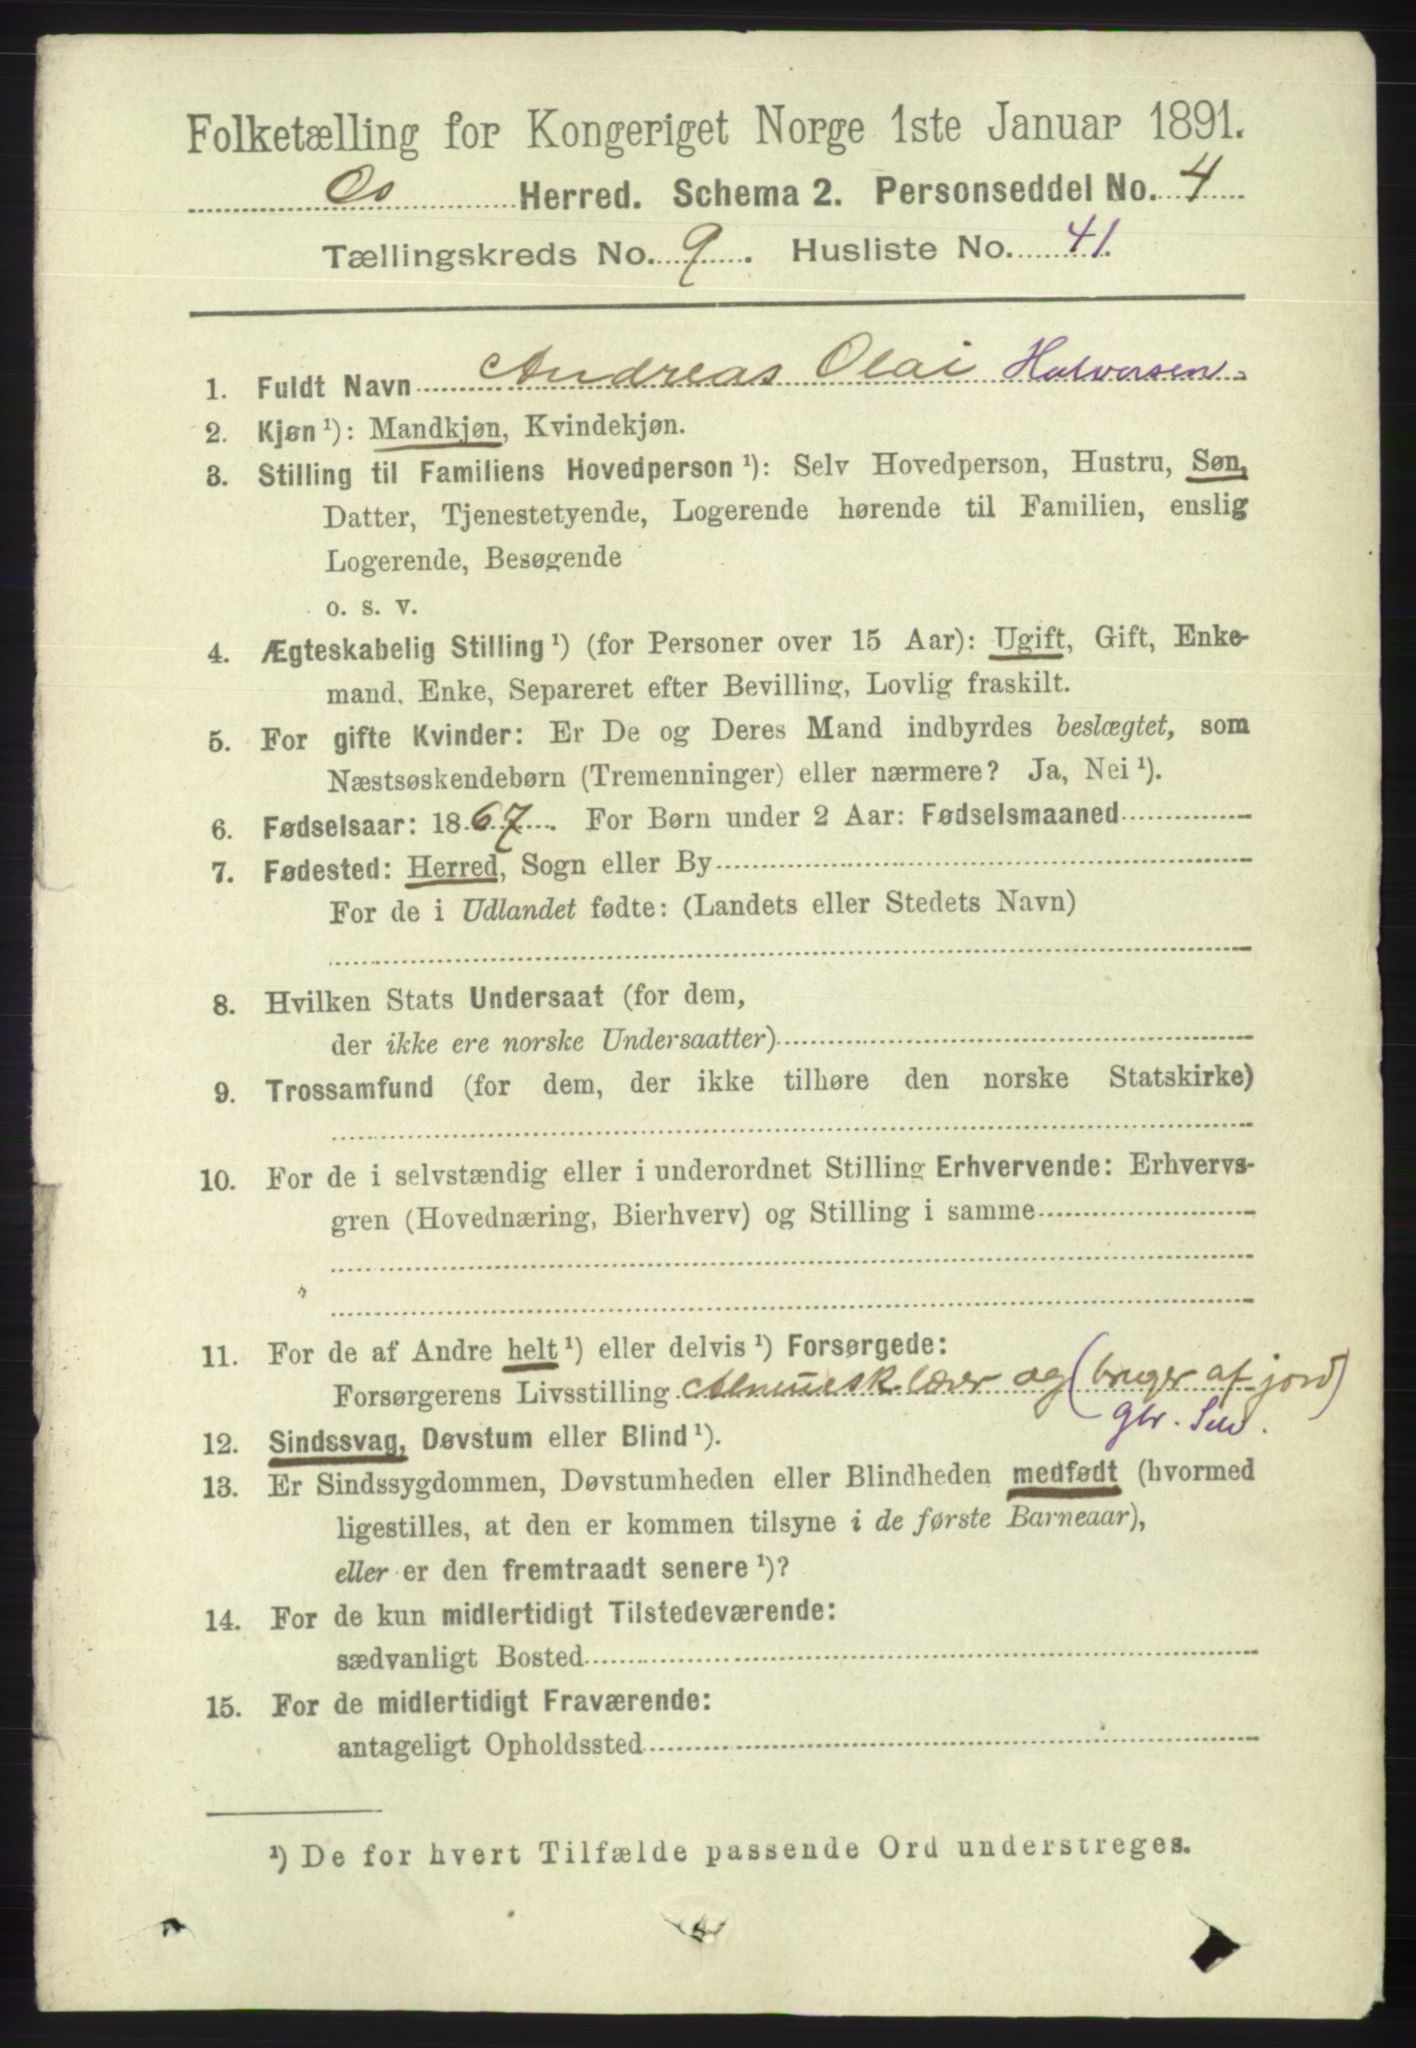 Folketælling for Kongeriget Norge 1ste Januar 1891.
Os Herred. Schema 2. Personseddel No. 4
Tællingskreds No. 9. Husliste No. 41.
1. Fuldt Navn Andreas Olai Halvorsen
2. Kjøn ¹): Mandkjøn, Kvindekjøn.
3. Stilling til Familiens Hovedperson ¹): Selv Hovedperson, Hustru, Søn,
Datter, Tjenestetyende, Logerende hørende til Familien, enslig
Logerende, Besøgende
o. s. v.
4. Ægteskabelig Stilling ¹) (for Personer over 15 Aar): Ugift, Gift, Enke-
mand, Enke, Separeret efter Bevilling, Lovlig fraskilt.
5. For gifte Kvinder: Er De og Deres Mand indbyrdes beslægtet, som
Næstsøskendebørn (Tremenninger) eller nærmere? Ja, Nei ¹).
6. Fødselsaar: 1867. For Børn under 2 Aar: Fødselsmaaned
7. Fødested: Herred, Sogn eller By
For de i Udlandet fødte: (Landets eller Stedets Navn)
8. Hvilken Stats Undersaat (for dem,
der ikke ere norske Undersaatter)
9. Trossamfund (for dem, der ikke tilhøre den norske Statskirke)
10. For de i selvstændig eller i underordnet Stilling Erhvervende: Erhvervs-
gren (Hovednæring, Bierhverv) og Stilling i samme
11. For de af Andre helt ¹) eller delvis ¹) Forsørgede:
Forsørgerens Livsstilling Almuesk.lærer og (bruger af jord)
gbr. Selv.
12. Sindssvag, Døvstum eller Blind ¹).
13. Er Sindssygdommen, Døvstumheden eller Blindheden medfødt (hvormed
ligestilles, at den er kommen tilsyne i de første Barneaar),
eller er den fremtraadt senere ¹)?
14. For de kun midlertidigt Tilstedeværende:
sædvanligt Bosted
15. For de midlertidigt Fraværende:
antageligt Opholdssted
¹) De for hvert Tilfælde passende Ord understreges.